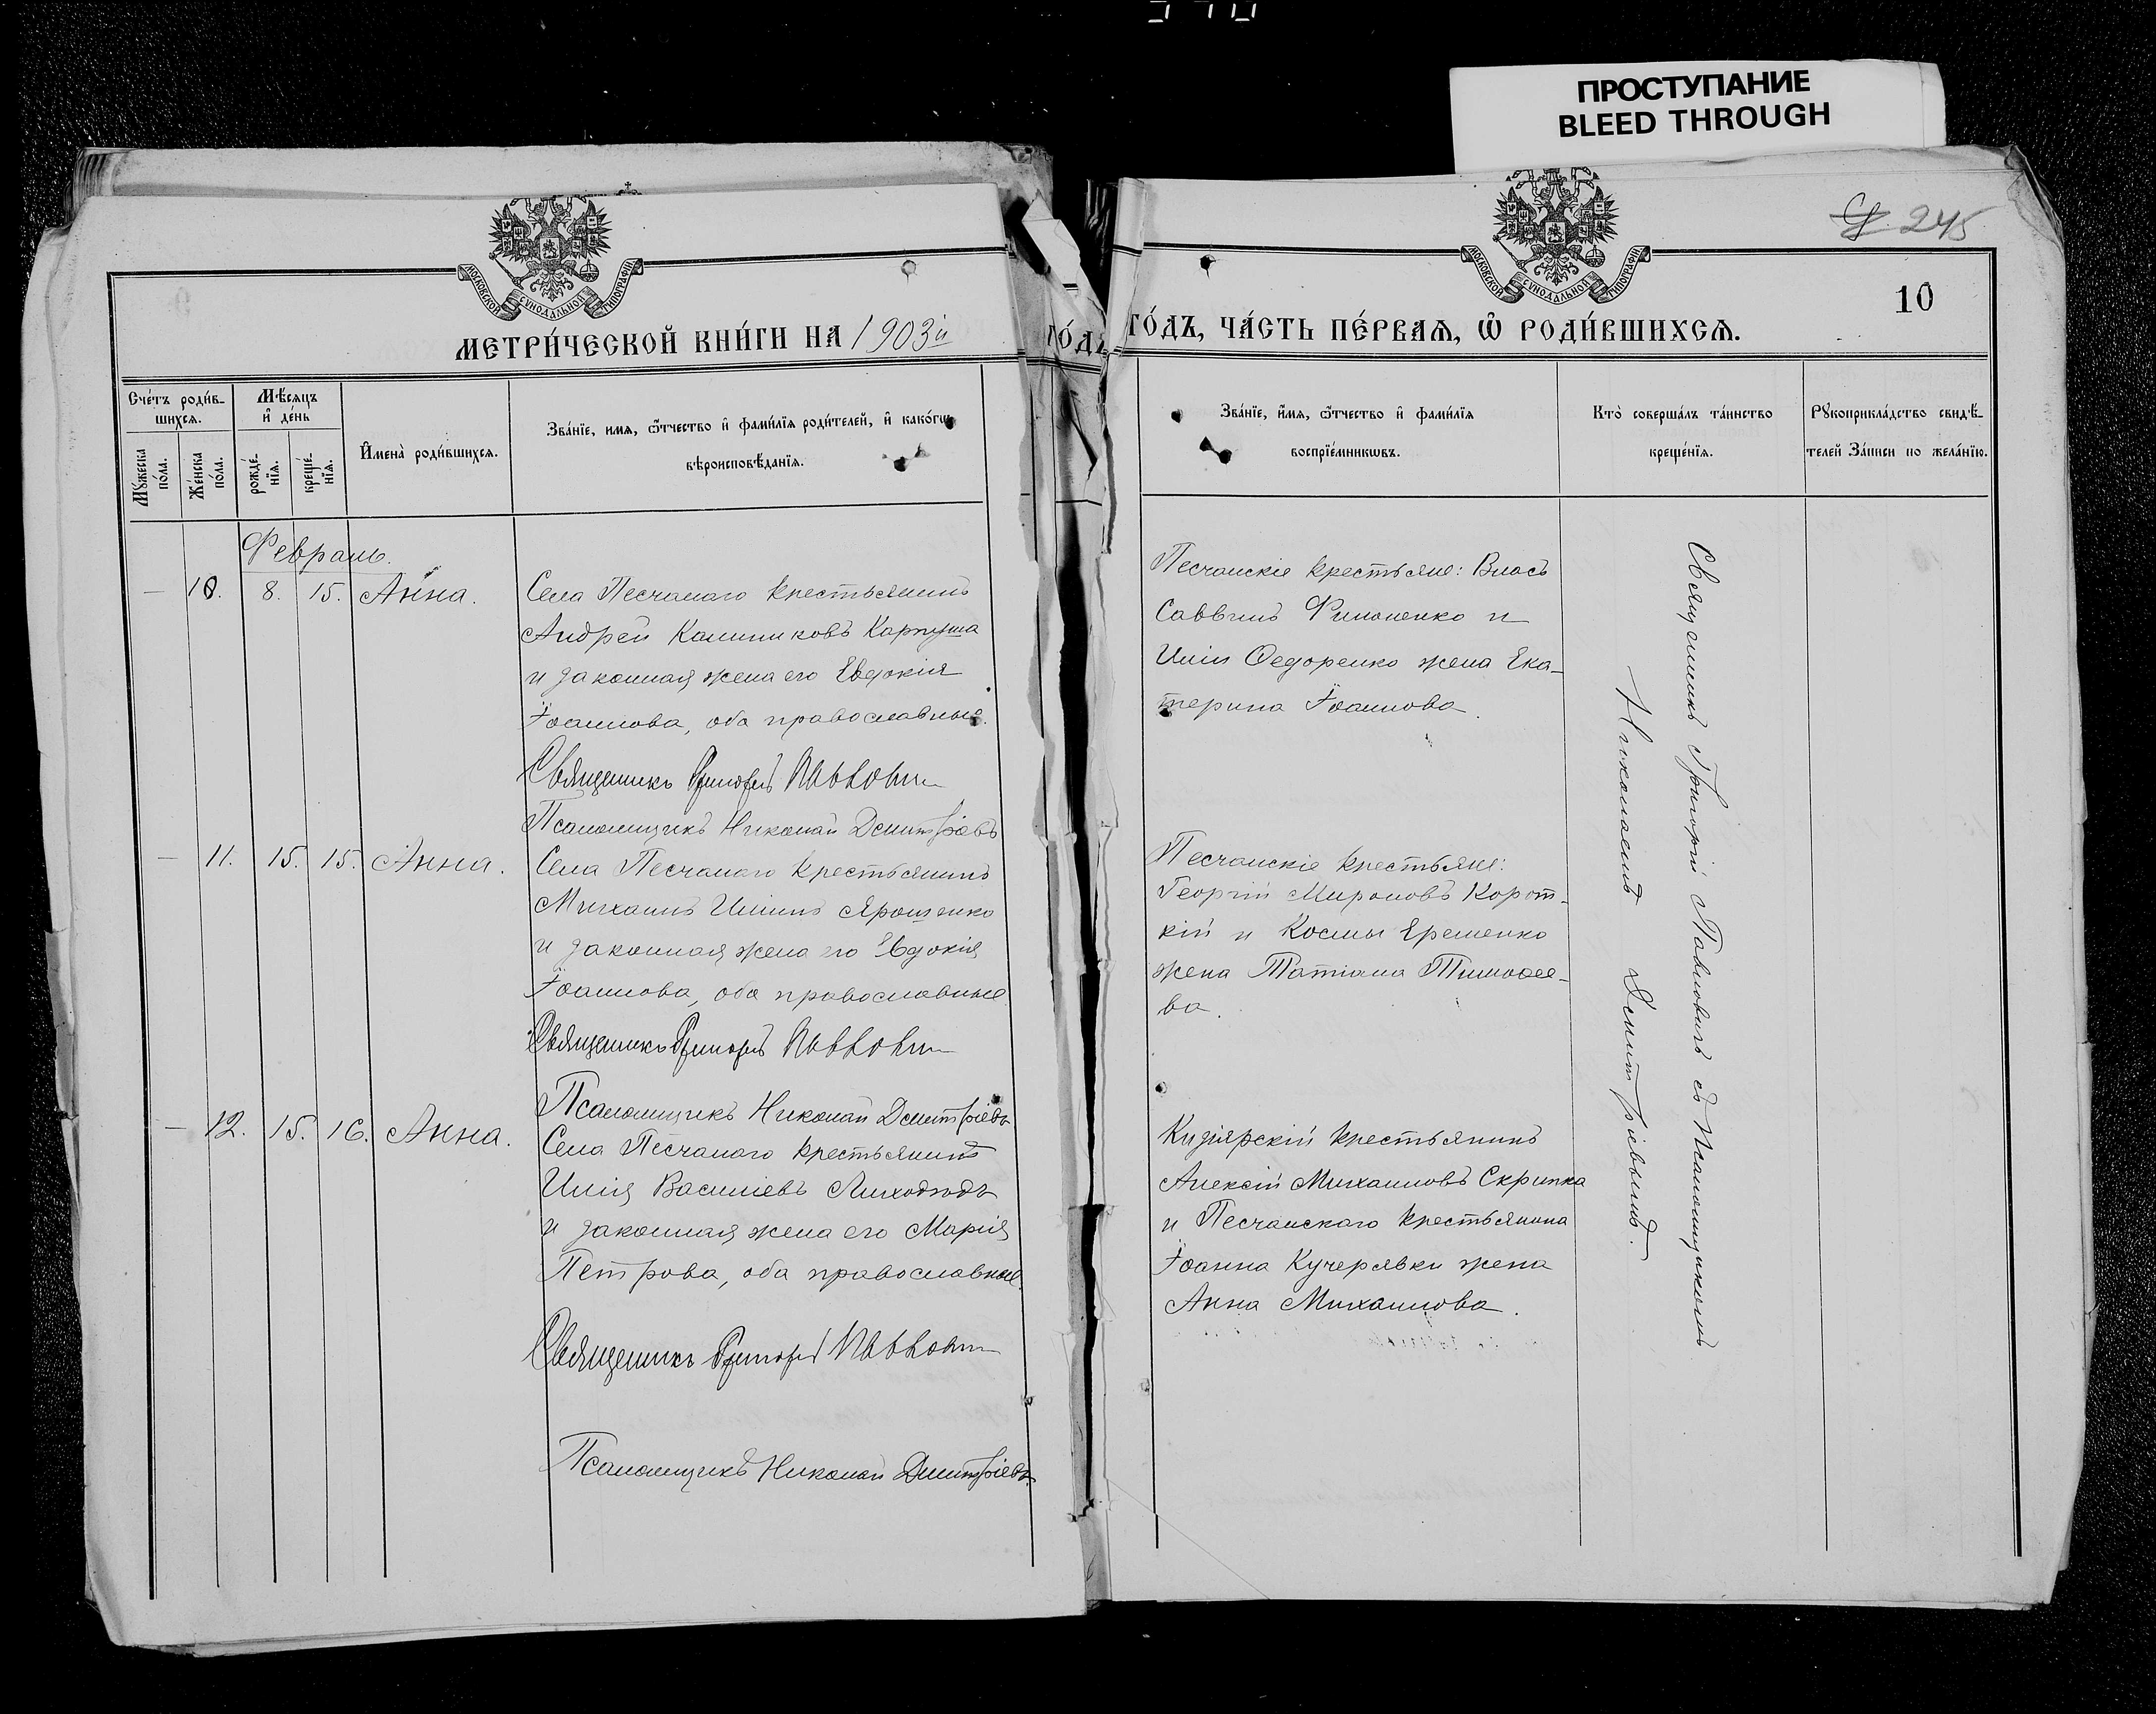 ПРОСТУПАНИЕ
BLEED THROUGH
245
10
МОСКОВСКОЙ СѴНОДАЛЬНОЙ ТИПОГРАФІИ
МОСКОВСКОЙ СѴНОДАЛЬНОЙ ТИПОГРАФІИ
МЕТРИ́ЧЕСКОЙ КНИ́ГИ НА 1903й
ГО́ДЪ, ЧА́СТЬ ПЕ́РВАѦ, Ѽ РОДИ́ВШИХСѦ.
Счётъ роди́в-
шихсѧ.
Мꙋ́жеска по́ла.
Же́нска по́ла.
Мѣ́сѧцъ
и҆ де́нь
рожде́-
нїѧ.
креще́-
нїѧ.
И҆мена̀ роди́вшихсѧ.
Зва́нїе, имѧ, ѻ҆́тчество и҆ фами́лїѧ роди́телей, и҆ како́гѡ
вѣроисповѣ́данїѧ.
Зва́нїе, и҆́мѧ, ѻ҆́тчество и҆ фами́лїѧ
воспрїе́мникѡвъ.
Кто̀ соверша́лъ та́инство
креще́нїѧ.
Рꙋкоприкла́дство свидѣ́-
телей За́писи по жела́нїю.
Февраль.
— 10. 8. 15. Анна.
Села Песчанаго крестьянинъ
Андрей Калинниковъ Карпуша
и законная жена его Евдокія
Іоаннова, оба православные.
Священникъ Григорій Павловичъ
Псаломщикъ Николай Дмитріевъ
Песчанскіе крестьяне: Власъ
Саввинъ Филоненко и
Иліи Ѳедоренко жена Ека-
терина Іоаннова.
— 11. 15. 15. Анна.
Села Песчанаго крестьянинъ
Михаилъ Иліинъ Ярошенко
и законная жена его Евдокія
Іоаннова, оба православные
Священникъ Григорій Павловичъ
Псаломщикъ Николай Дмитріевъ
Песчанскіе крестьяне:
Георгій Мироновъ Корот-
кій и Космы Еременко
жена Татіана Тимоѳее-
ва.
— 12. 15. 16. Анна.
Села Песчанаго крестьянинъ
Илія Васильевъ Лиходѣдъ
и законная жена его Марія
Петрова, оба православные.
Священникъ Григорій Павловичъ
Псаломщикъ Николай Дмитріевъ.
Кизіярскій крестьянинъ
Алексій Михаиловъ Скрипка
и Песчанскаго крестьянина
Іоанна Кучерявки жена
Анна Михаилова.
Священникъ Григорій Павловичъ съ Псаломщикомъ
Николаемъ Дмитріевымъ.